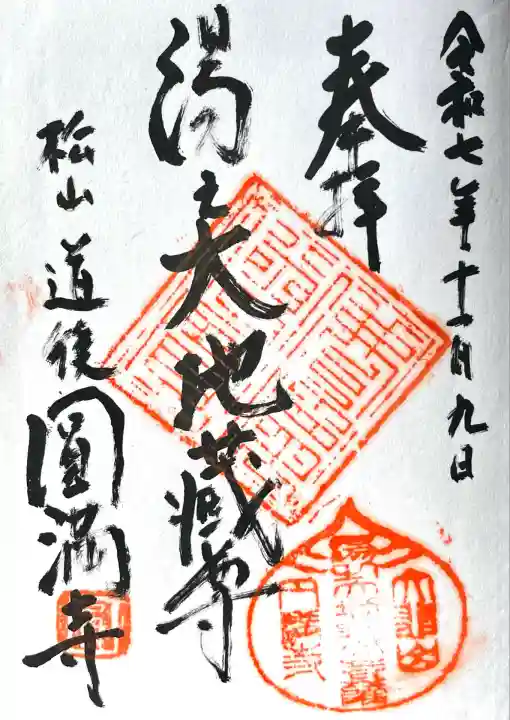 令和七年十一月九日
奉拝
湯之大地蔵尊
松山道後
圓満寺